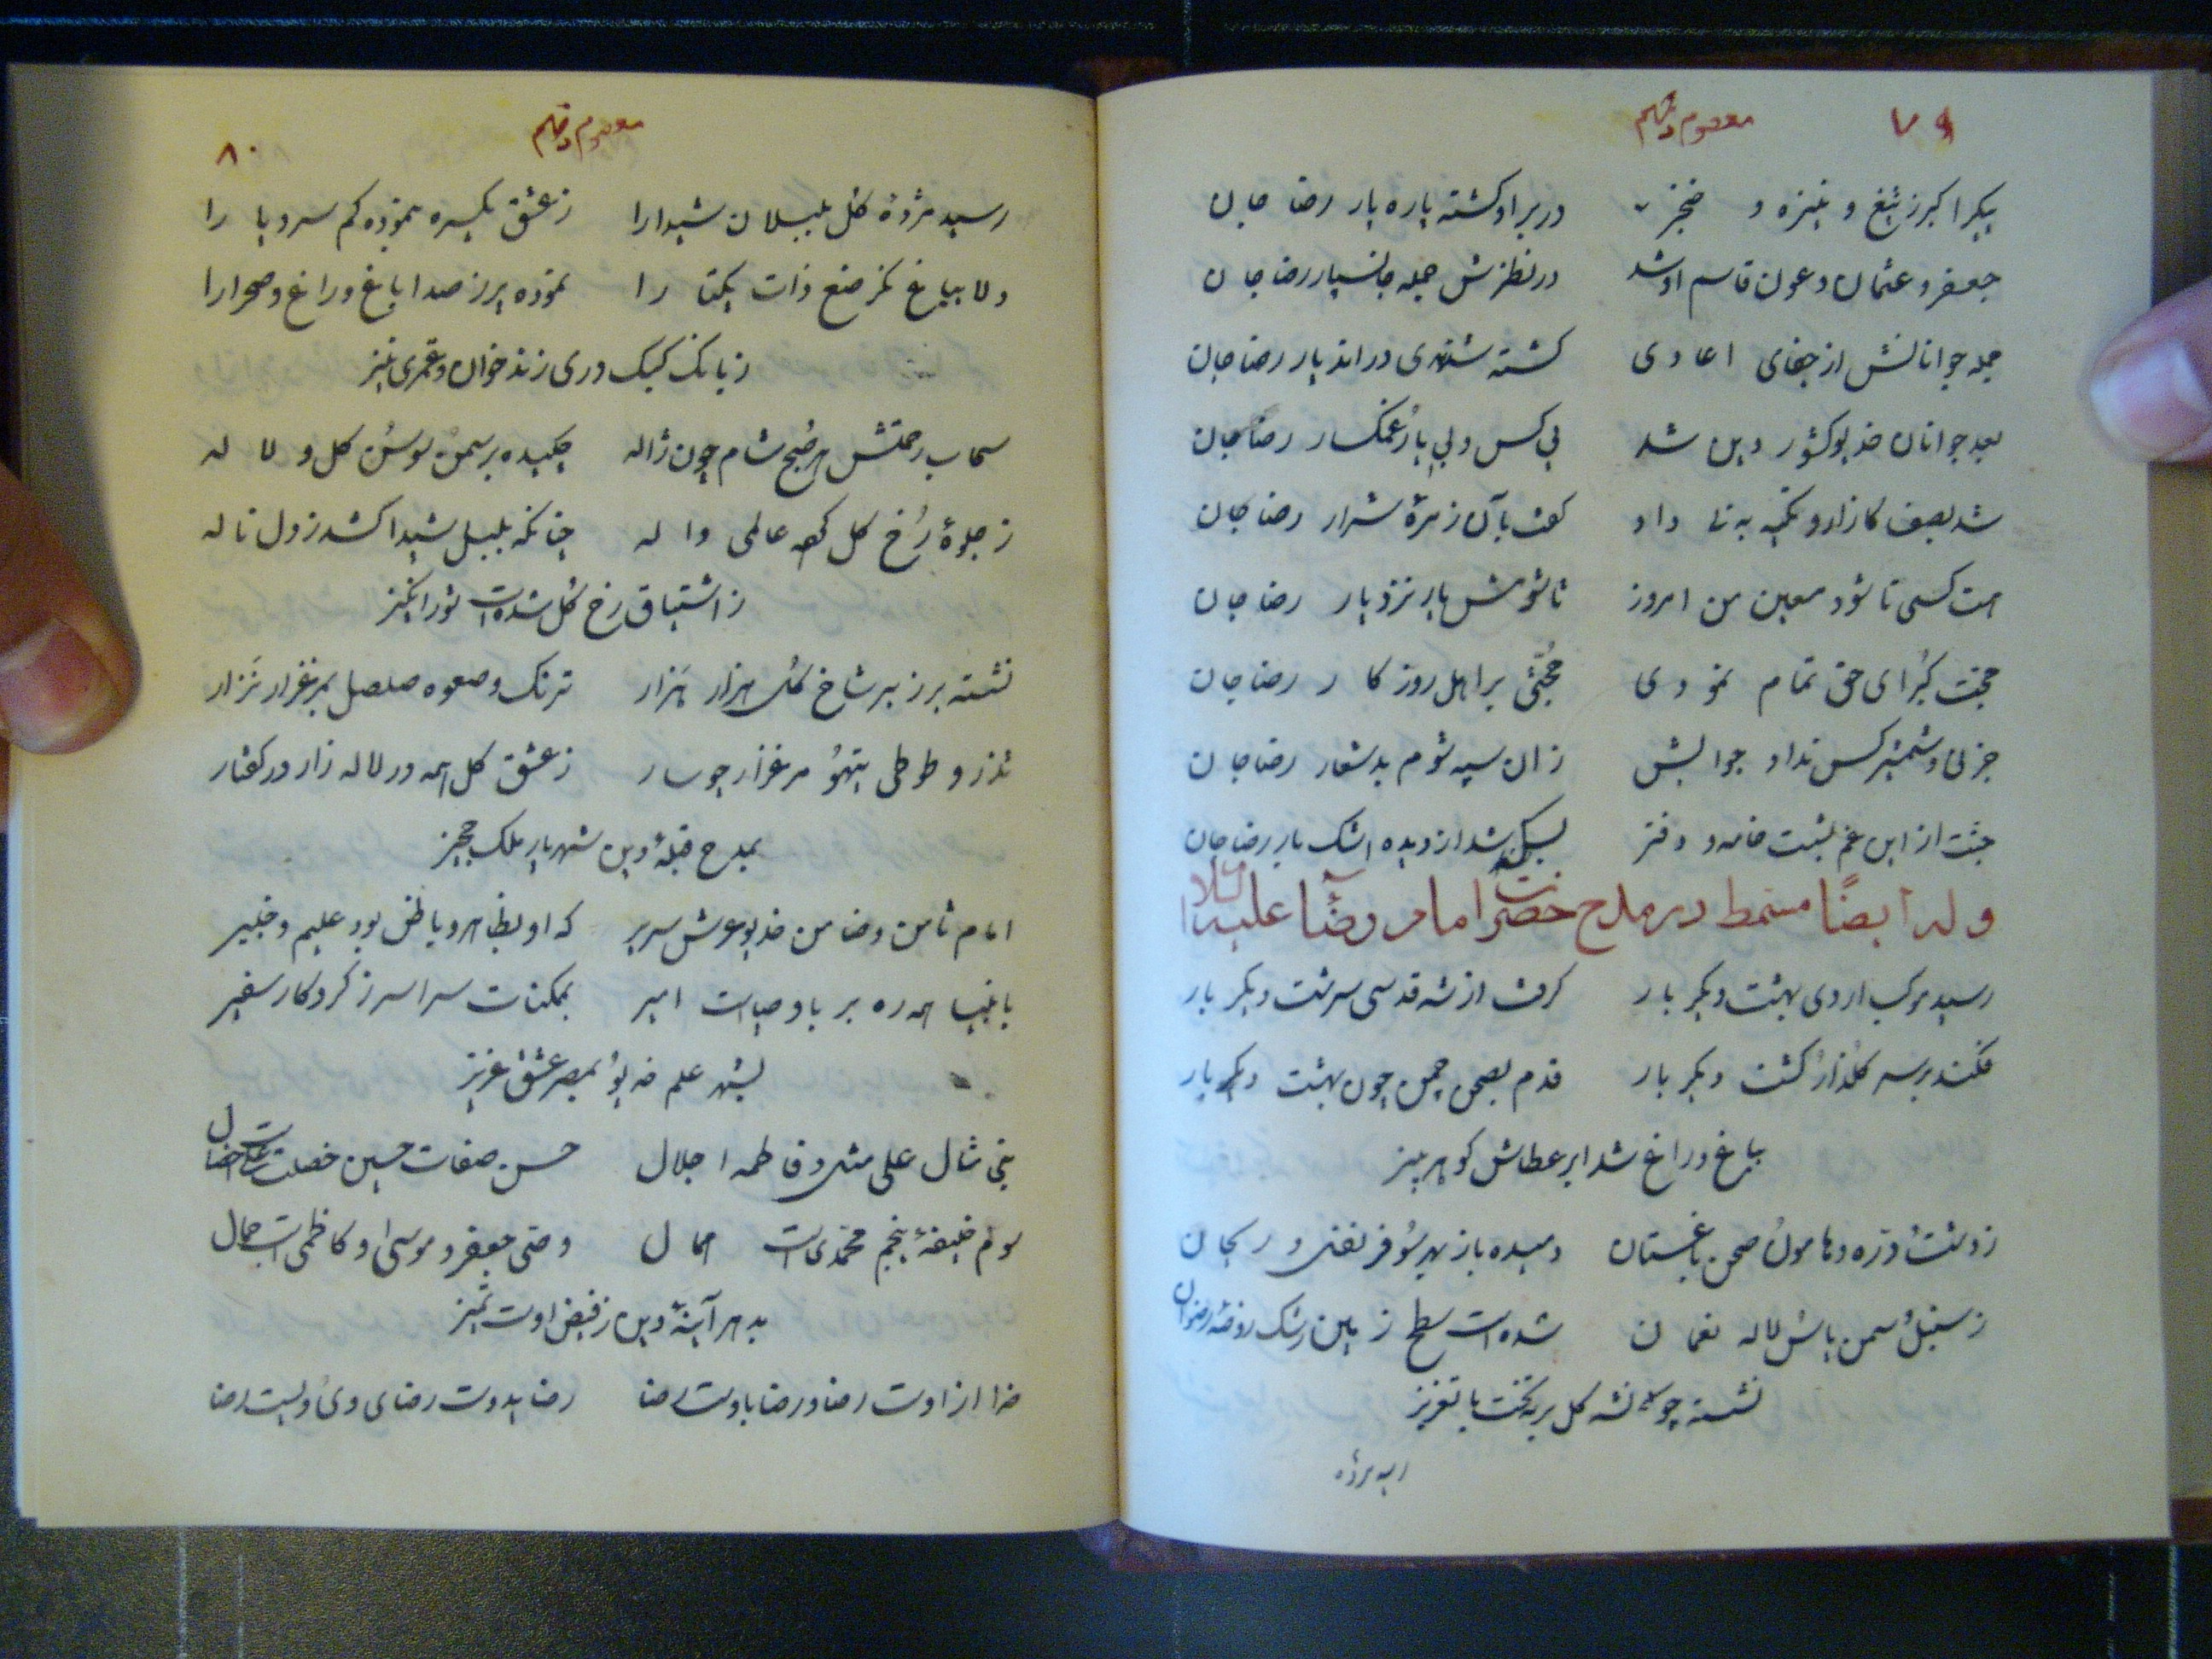 ٧٩ معصوم دهم
پیکر اکبر ز تیغ و نیزه و خنجر در بر او گشته پاره پار رضا جان
جعفر و عثمان و عون قاسم او شد در نظرش جمله جانسپار رضا جان
جمله جوانانش از جفای اعادی کشته شدندی در اندیار رضا جان
بعد جوانان خدیو کشور دین شد بی کس و بی یار و غمگسار رضا جان
شد بصف کارزار و تکیه به نی داد گفت بآن زمرهٔ شرار رضا جان
هست کسی تا شود معین من امروز تا شومش یار نزد یار رضا جان
حجت کبرای حق تمام نمودی حجتی بر اهل روزگار رضا جان
جز نی و شمشیر کس نداد جوابش زان سپه شوم بدشعار رضا جان
از این غم خامه و دفتر بسکه شد از دیده اشک بار رضا جان
وله ایضًا مسمط در مدح حضرت امام رضآ علیه السلام
رسید موکب اردی بهشت دیگر بار گرفت از شه قدسی سرشت دیگر بار
فکند بر سر گلزار کشت دیگر بار قدم بصحن چمن چون بهشت دیگر بار
بباغ و راغ شد ابر عطاش گوهر بیز
ز دشت و دره و هامون صحن باغستان دمیده باز بهر سو قرنفل و ریحان
ز سنبل و سمن یاس لاله نعمان شده است سطح زمین رشک روضهٔ رضوان
نشسته چونکه شه گل بر تخت با تعزیز
رسید مژده
٨٠ معصوم دهم
رسید مژدهٔ گل بلبلان شیدا را ز عشق یکسره بنموده گم سر و پا را
دلا بباغ نگر صنع ذات یکتا را نموده پر ز صدا باغ و راغ و صحرا را
ز بانک کبک دری زند خوان و قمری نیز
سحاب رحمتش هر صبح شام چون ژاله چکیده بر سمن سوسن گل و لاله
ز جلوهٔ رُخ گل گشته عالمی واله چنانکه بلبل شیدا کشد ز دل ناله
ز اشتیاق رخ گل شده است شورانگیز
نشسته بر زبر شاخ گل هزار هزار ترنک و صعوه صلصل بمرغزار نزار
تذرو طوطی تیهو مرغزار جوسار ز عشق گل همه در لاله زار در گفتار
بمدح قبلهٔ دین شهریار ملک حجیز
امام ثامن و ضامن خدیو عرش سریر که او بظاهر و باطن بود علیم و خبیر
بانبیا همه رهبر باوصیاست امیر بممکنات سراسر ز کردگار سفیر
بشهر علم خدیو بمصر عشق عزیز
نبی مثال علی مثل و فاطمه اجلال حسن صفات حسین خصلت
سوم خلیفهٔ پنجم محمدی است همال وصی جعفر و موسی او کاظمی است جمال
بدهر آینهٔ دین ز فیض اوست تمیز
خدا از اوست رضا و رضا باوست رضا رضا بدوست رضای وی ولیست رضا